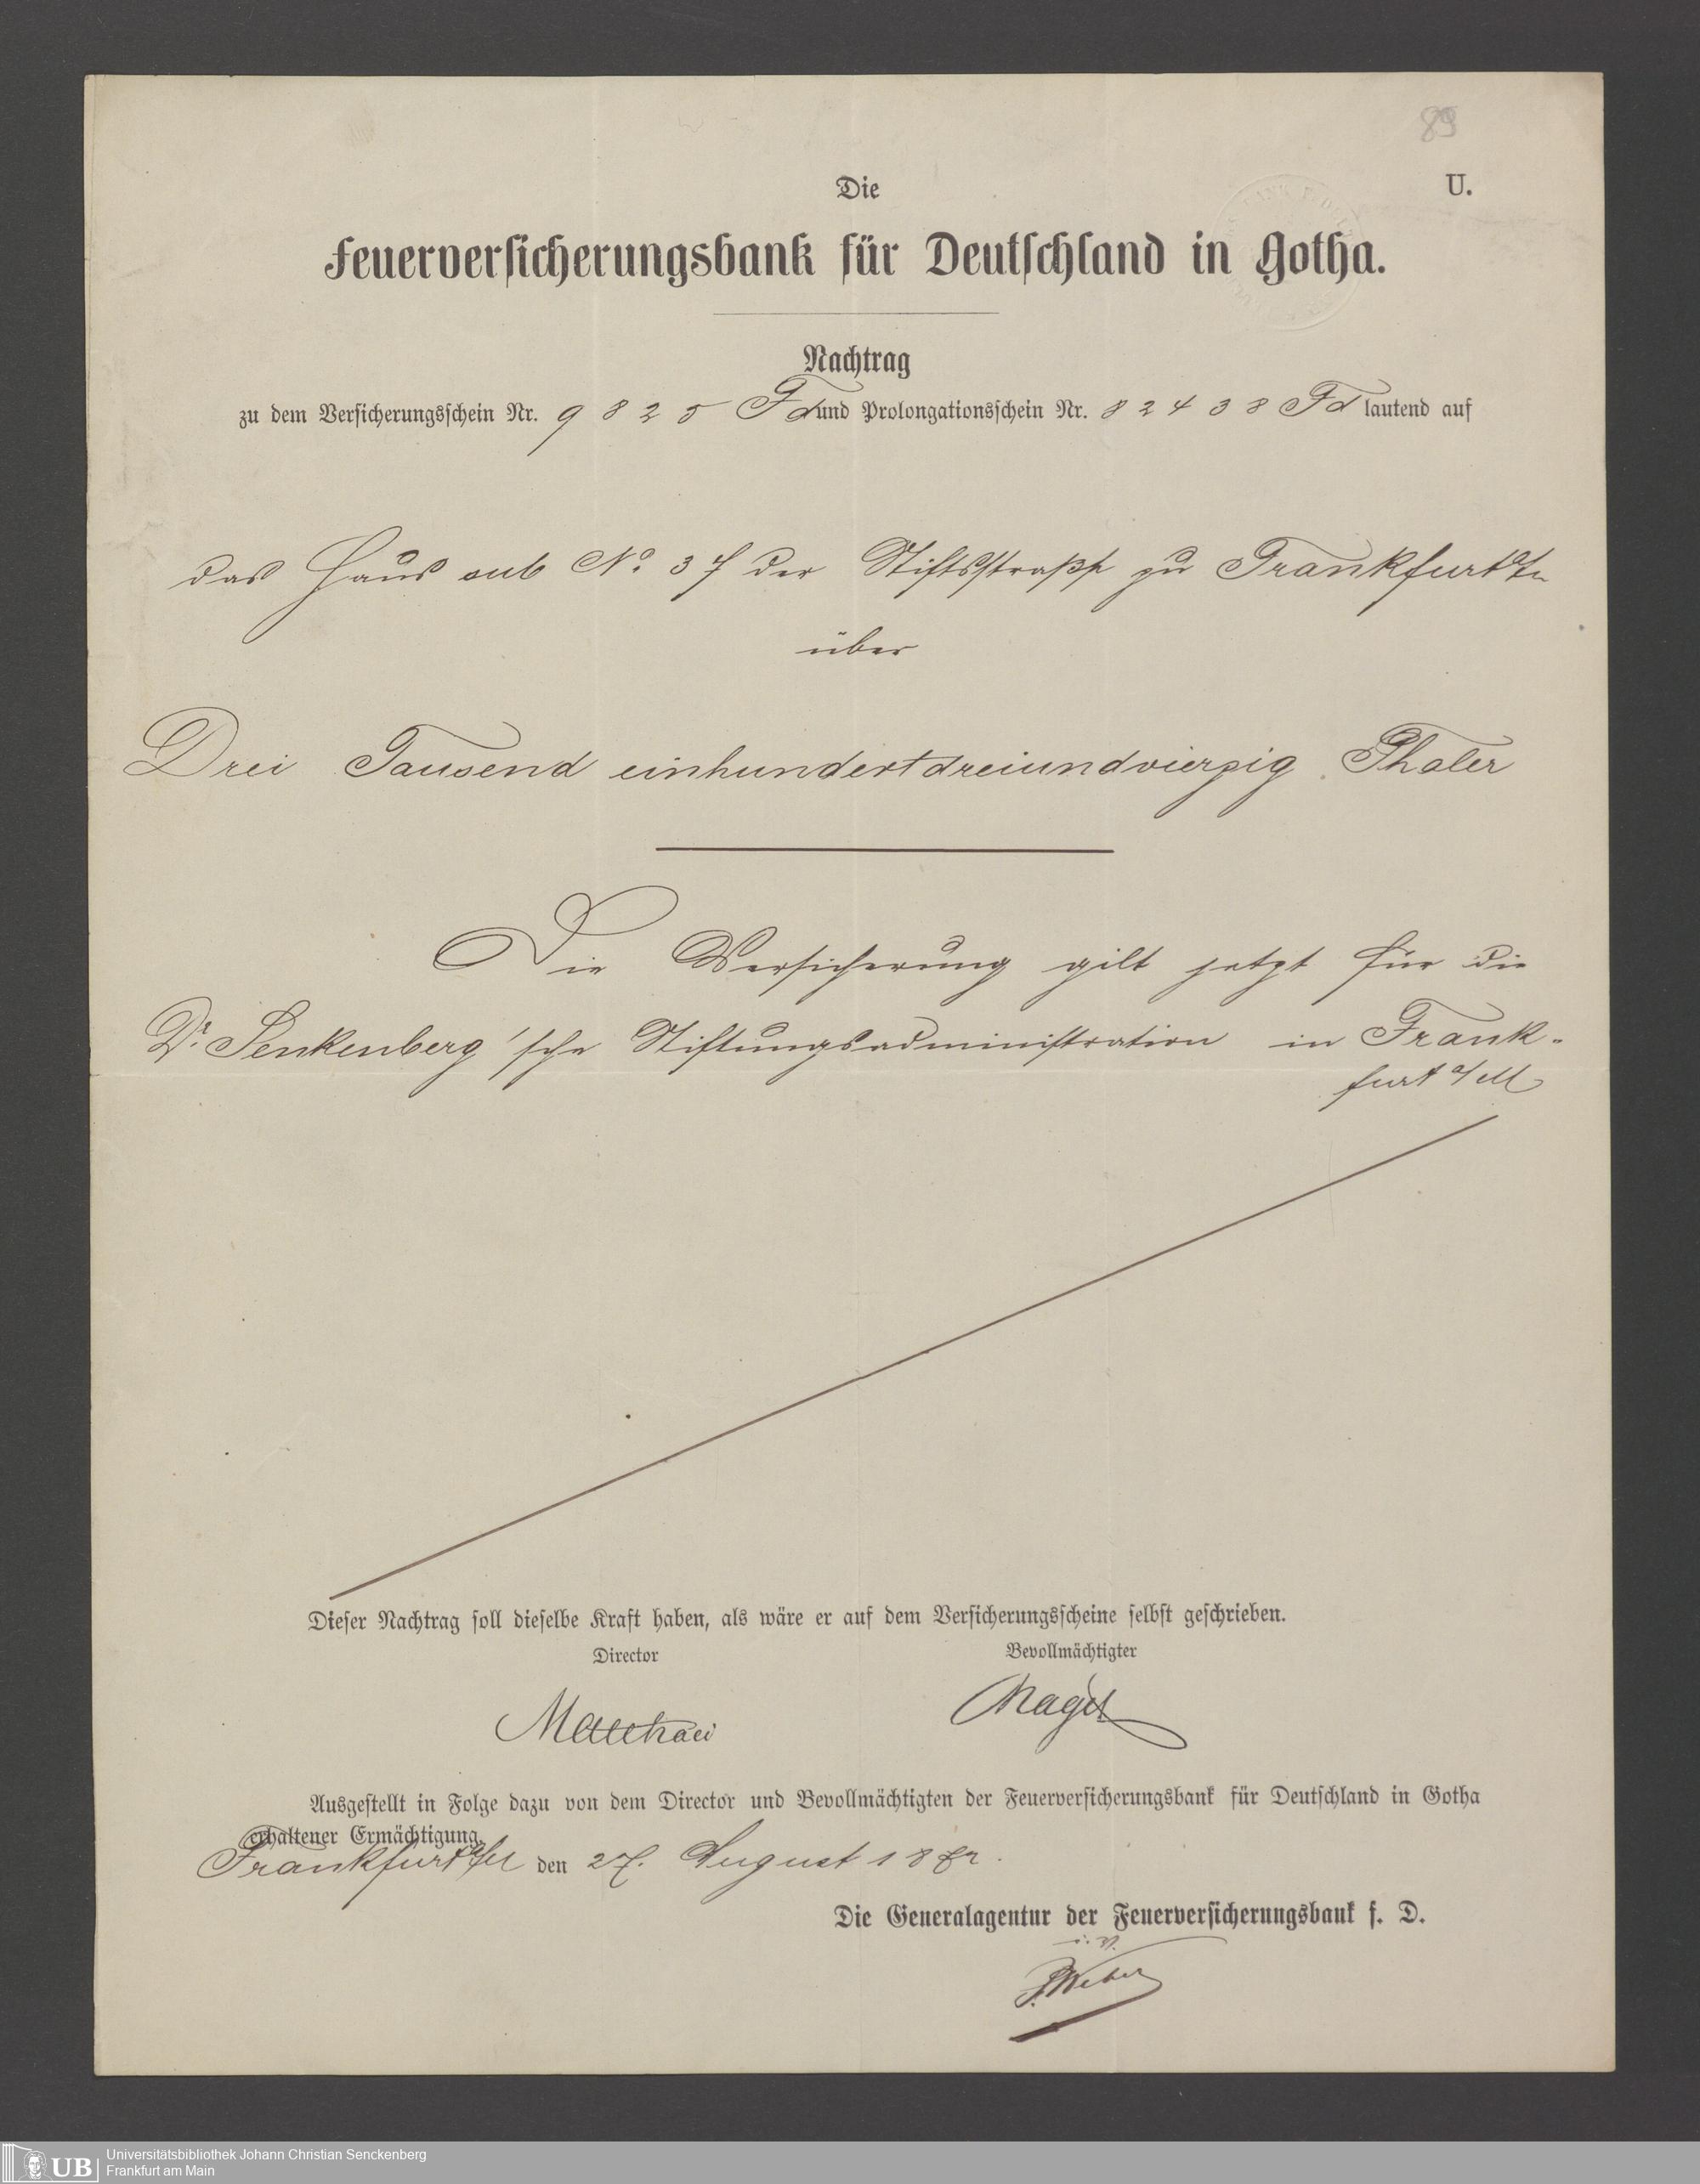 89
Die
U.
Feuerversicherungsbank für Deutschland in Gotha.
Nachtrag
zu dem Versicherungsschein Nr. 9825 Fd und Prolongationsschein Nr. 82438 Fd lautend auf
das Haus sub No. 37 der Stiftsstraße zu Frankfurt a/m
über
Drei Tausend einhundertdreiundvierzig Thaler
Die Versicherung gilt jetzt für die
Dr. Senkenberg'sche Stiftungsadministration in Frank-
furt a/M
Dieser Nachtrag soll dieselbe Kraft haben, als wäre er auf dem Versicherungsscheine selbst geschrieben.
Director
Bevollmächtigter
Matthaei
Nagel
Ausgestellt in Folge dazu von dem Director und Bevollmächtigten der Feuerversicherungsbank für Deutschland in Gotha
erhaltener Ermächtigung.
Frankfurt a/M den 27. August 18
Die Generalagentur der Feuerversicherungsbank f. D.
i. V.
Weber
UB
Universitätsbibliothek Johann Christian Senckenberg
Frankfurt am Main